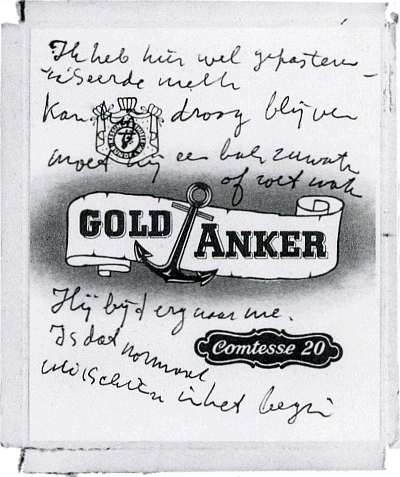 Ik heb hier wel gepasteu-
riseerde melk
Kan droog blijven
moet hij een bak zuwatr
of zoet wate
GOLD ANKER
Hij bijt erg naar me.
Comtesse 20
Is dat normaal
misschien in het begin